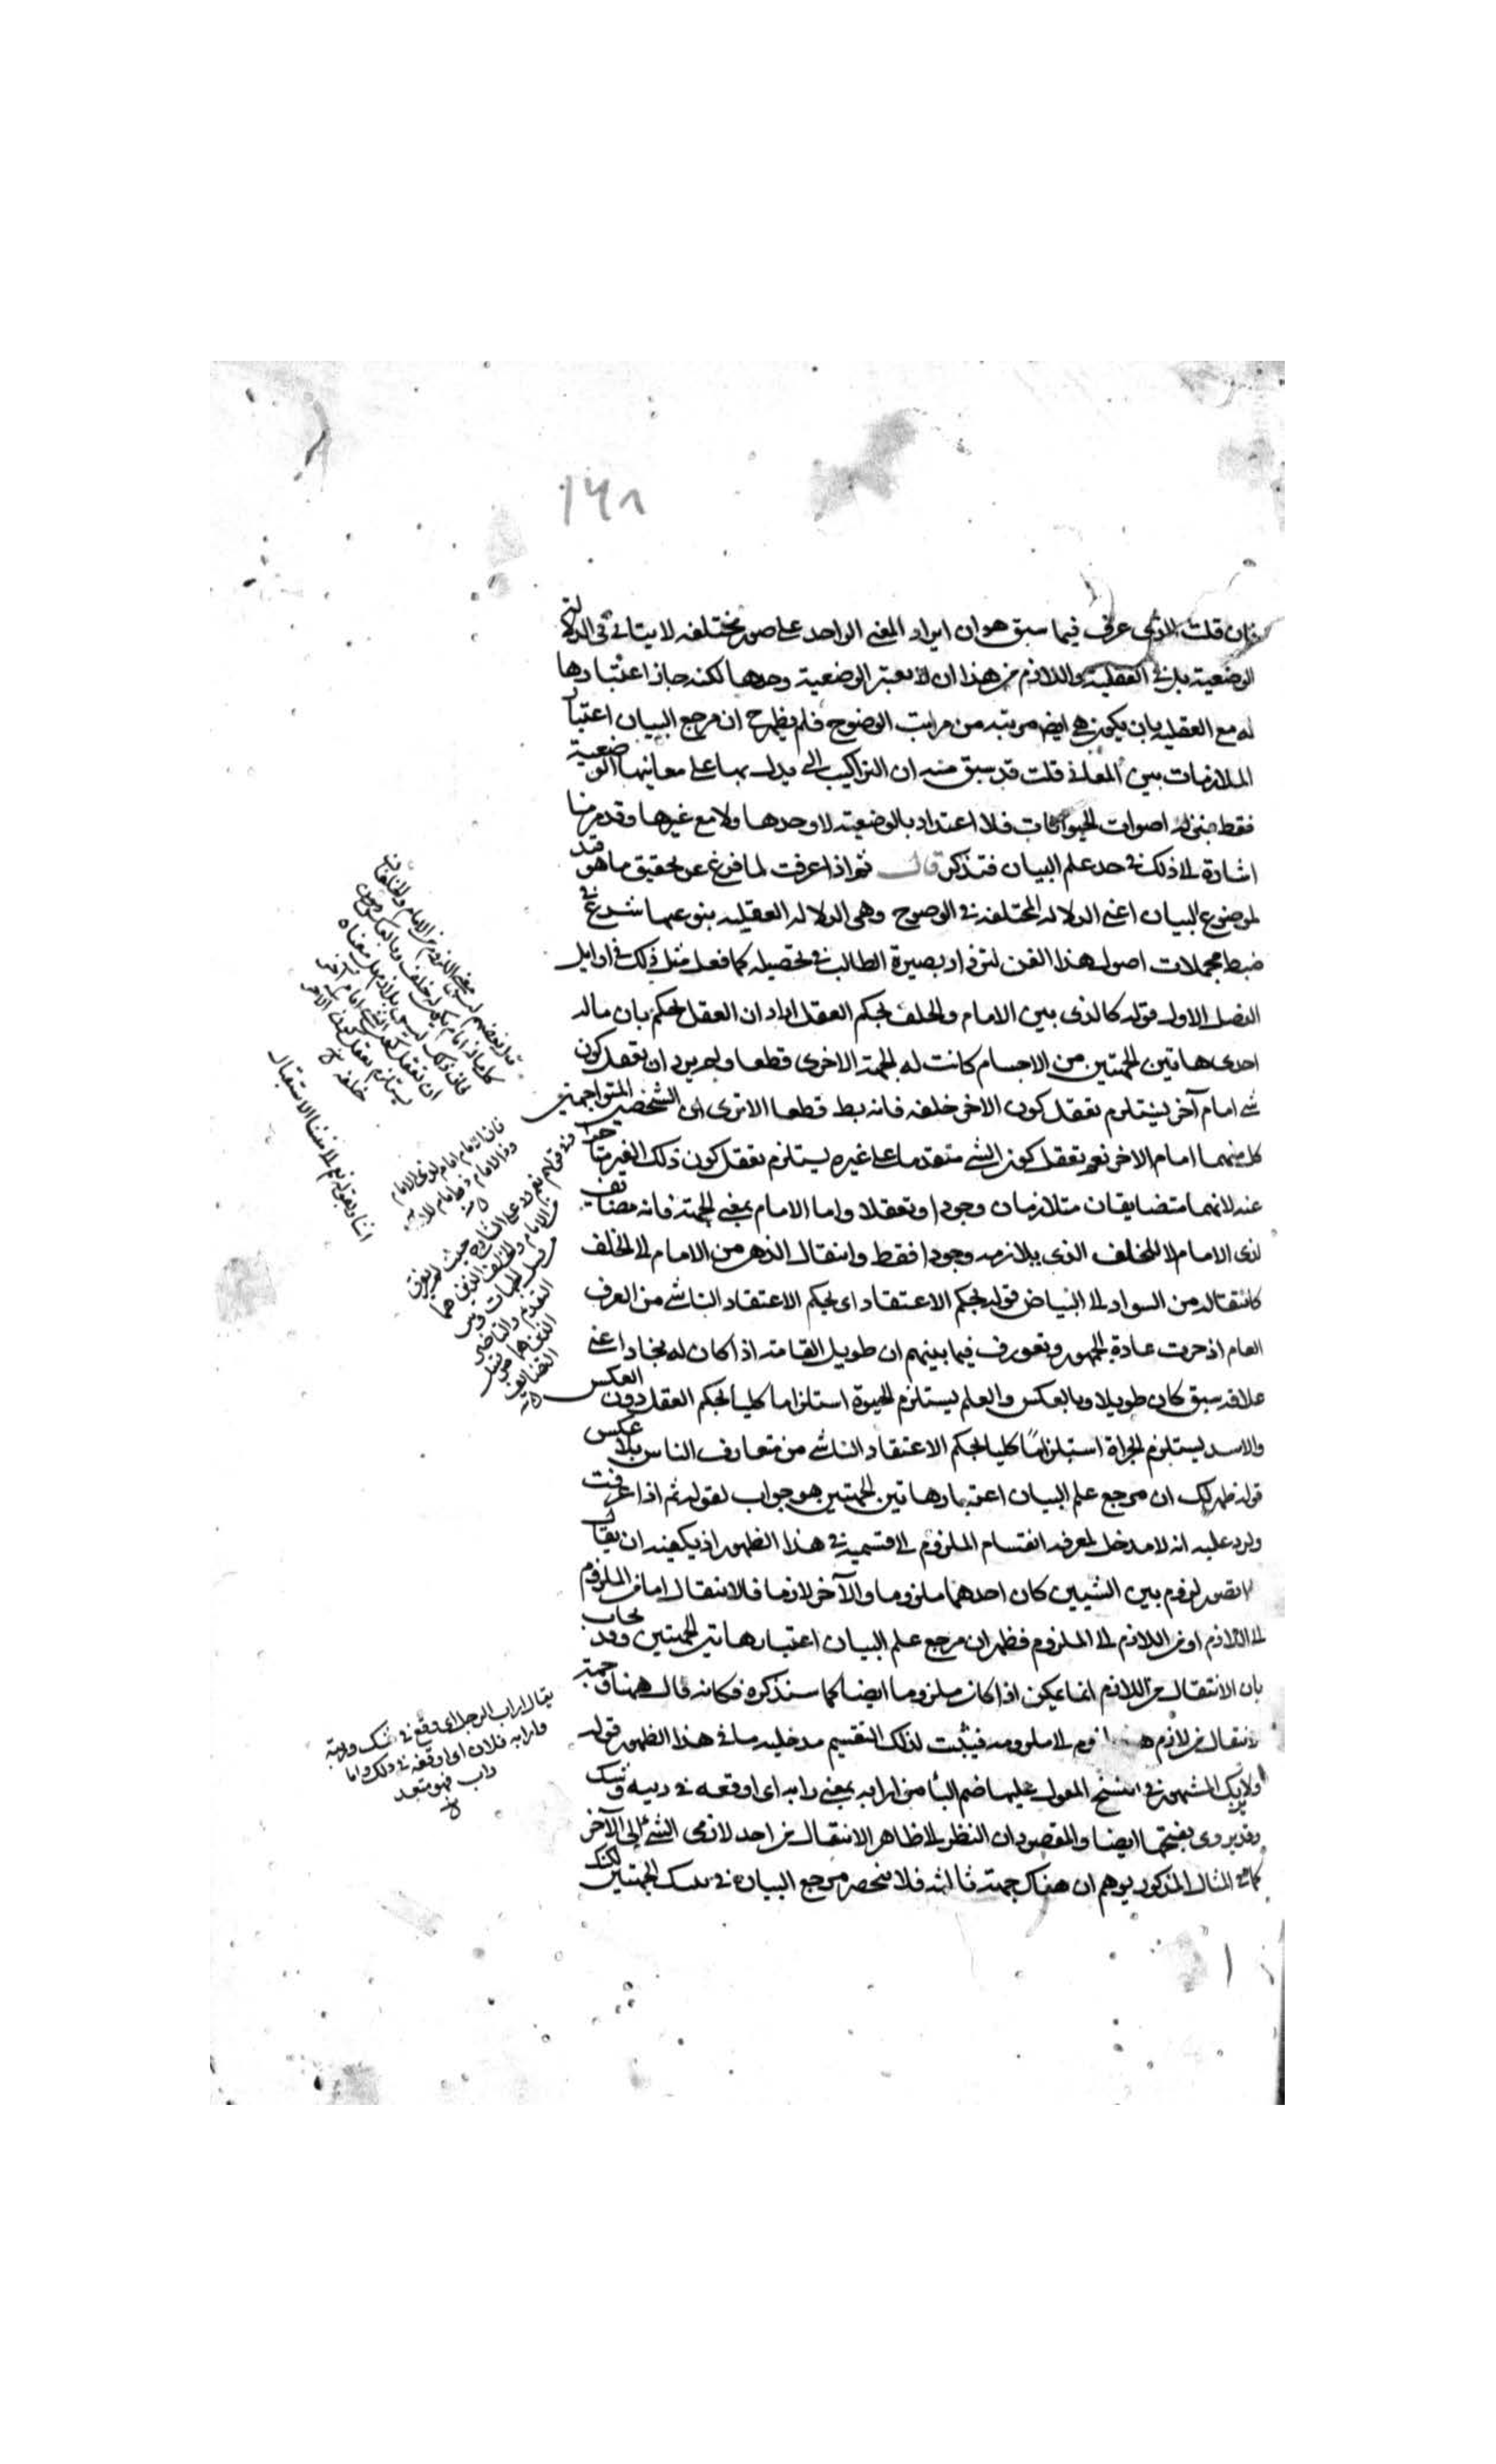 ١٦٨
فان قلت الذى عرف فيما سبق هو ان ايراد المعنى الواحد على صور مختلفه لا يتاتى فى الدلالة
الوضعية بل فى العقلية واللازم من هذا ان لا يعتبر الوضعية وحدها لكنه جاز اعتبارها
له مع العقليه بان يكون هى ايضا مرتبه من مراتب الوضوح فلم يظهر ح ان مرجع البيان اعتبار
الملازمات بين المعانى قلت قد سبق منه ان التراكيب التى يدل بها على معانيها الوضعية
فقط بمنزله اصوات الحيوانات فلا اعتداد بالوضعيته لا وحدها ولا مع غيرها وقد مر منا
اشارة الى ذلك فى حد علم البيان فتذكر قال ثم اذا عرفت لما فرغ عن تحقيق ما هو قيد
لموضوع البيان اعنى الدلاله المختلفه فى الوضوح وهى الدلاله العقليه بنوعيها شرع فى
ضبط مجملات اصول هذا الفن لتزداد بصيرة الطالب فى تحصيله كما فعل مثل ذلك فى اوايل
الفصل الاول قوله كالذى بين الامام والخلف بحكم العقل اراد ان العقل يحكم بان ماله
احدى هاتين الجهتين من الاجسام كانت له الجهة الاخرى قطعا ولم يرد ان تعقل كون
شى امام آخر يستلزم تعقل كون الاخر خلفه فانه بط قطعا الا ترى ان الشخصين المتواجهين
كل منهما امام الاخر نعم تعقل كون الشى متقدما على غيره يستلزم تعقل كون ذلك الغير متاخرا
عنه لانهما متضايفان متلازمان وجودا وتعقلا واما الامام بمعنى الجهة فانه مضايف
لذى الامام لا للخلف الذى يلازمه وجودا فقط وانتقال الذهن من الامام الى الخلف
كانتقاله من السواد الى البياض قوله بحكم الاعتقاد اى بحكم الاعتقاد الناشى من العرف
العام اذ جرت عادة الجمهور وتعورف فيما بينهم ان طويل القامة اذا كان له نجاد اعنى
علاقه سيف كان طويلا وبالعكس والعلم يستلزم الحيوة استلزاما كليا بحكم العقل دون العكس
والاسد يستلزم الجراة استلزاما كليا بحكم الاعتقاد الناشى من متعارف الناس بلا عكس
قوله ظهر لك ان مرجع علم البيان اعتبار هاتين الجهتين هو جواب لقوله ثم اذا عرفت
ويرد عليه انه لا مدخل لمعرفه انقسام الملزوم الى قسميه فى هذا الظهور اذ يكفيه ان يقال
لا تصور لزوم بين الشيين كان احدهما ملزوما والآخر لازما فالانتقال اما من الملزوم
الى اللازم او من اللازم الى الملزوم فظهر ان مرجع علم البيان اعتبار هاتين الجهتين وقد يجاب
بان الانتقال من اللازم انما يمكن اذا كان ملزوما ايضا كما سنذكره فكانه قال ههنا وجهة
انتقال من لازم هو ملزوم الى ملزومه فيثبت لذلك التقسيم مدخليه ما فى هذا الظهور قوله
ولا يريبك المشهور فى النسخ المعول عليها ضم اليا من ارابه بمعنى رابه اى اوقعه فى ريبه وشك
وقد يروى بفتحها ايضا والمقصود ان النظر الى ظاهر الانتقال من احد لازمى الشى الى الآخر
كما فى المثال المذكور يوهم ان هناك جهة ثالثه فلا ينحصر مرجع البيان فى تلك الجهتين لكنك
كل ماله امام يكون له خلف وبالعكس
فان ذلك ليس بلازم بل معناه
ان تعقل كون الشى امام آخر
يستلزم تعقل كون الآخر
خلفه
يقال اراب الرجل اى وقع فى شك وريبة
وارابه فلان اى اوقعه فى ذلك واما
راب فهو متعد